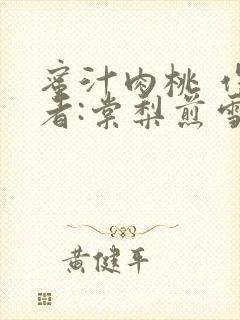 蜜汁肉桃
者:棠梨煎雪
黄健平